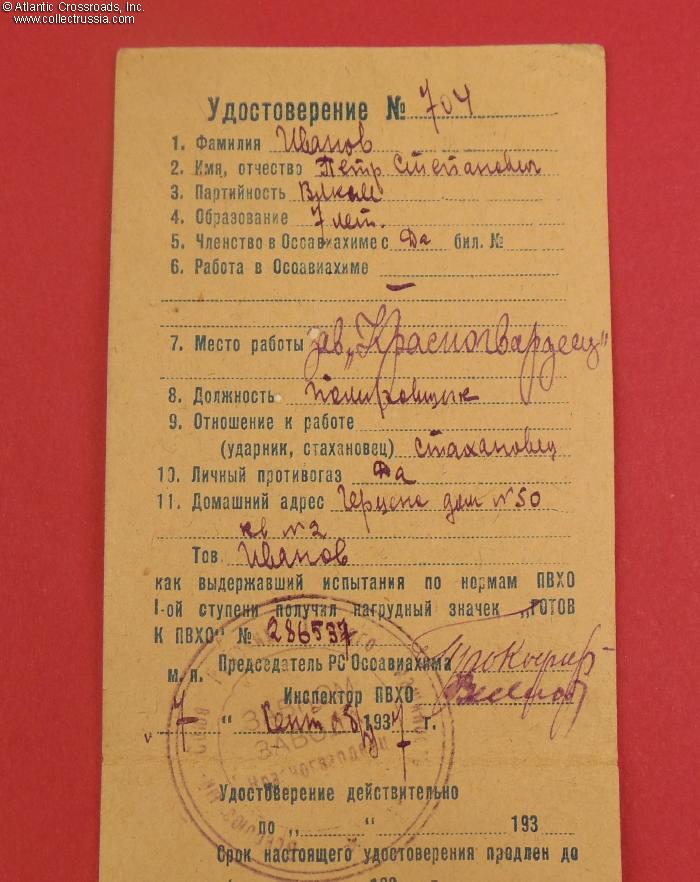 © Atlantic Crossroads, Inc.
www.collectrussia.com
Удостоверение № 704
1. Фамилия Иванов
2. Имя, отчество Петр Степанович
3. Партийность ВЛКСМ
4. Образование 7 лет.
5. Членство в Осоавиахиме с Да бил. №
6. Работа в Осоавиахиме —
7. Место работы зав „Красногвардеец"
8. Должность полировщик
9. Отношение к работе
(ударник, стахановец) стахановец
10. Личный противогаз Да
11. Домашний адрес Герцена дом №50
кв №2
Тов Иванов
как выдержавший испытания по нормам ПВХО
I-ой ступени получил нагрудный значек „ГОТОВ
К ПВХО" № 286537
м. п. Председатель РС Осоавиахима
Инспектор ПВХО
„ 7 " Сентября 1937 г.
ЗАВКОМ
ЗАВОДА
Красногвардеец
Удостоверение действительно
по „ " 193
Срок настоящего удостоверения продлен до